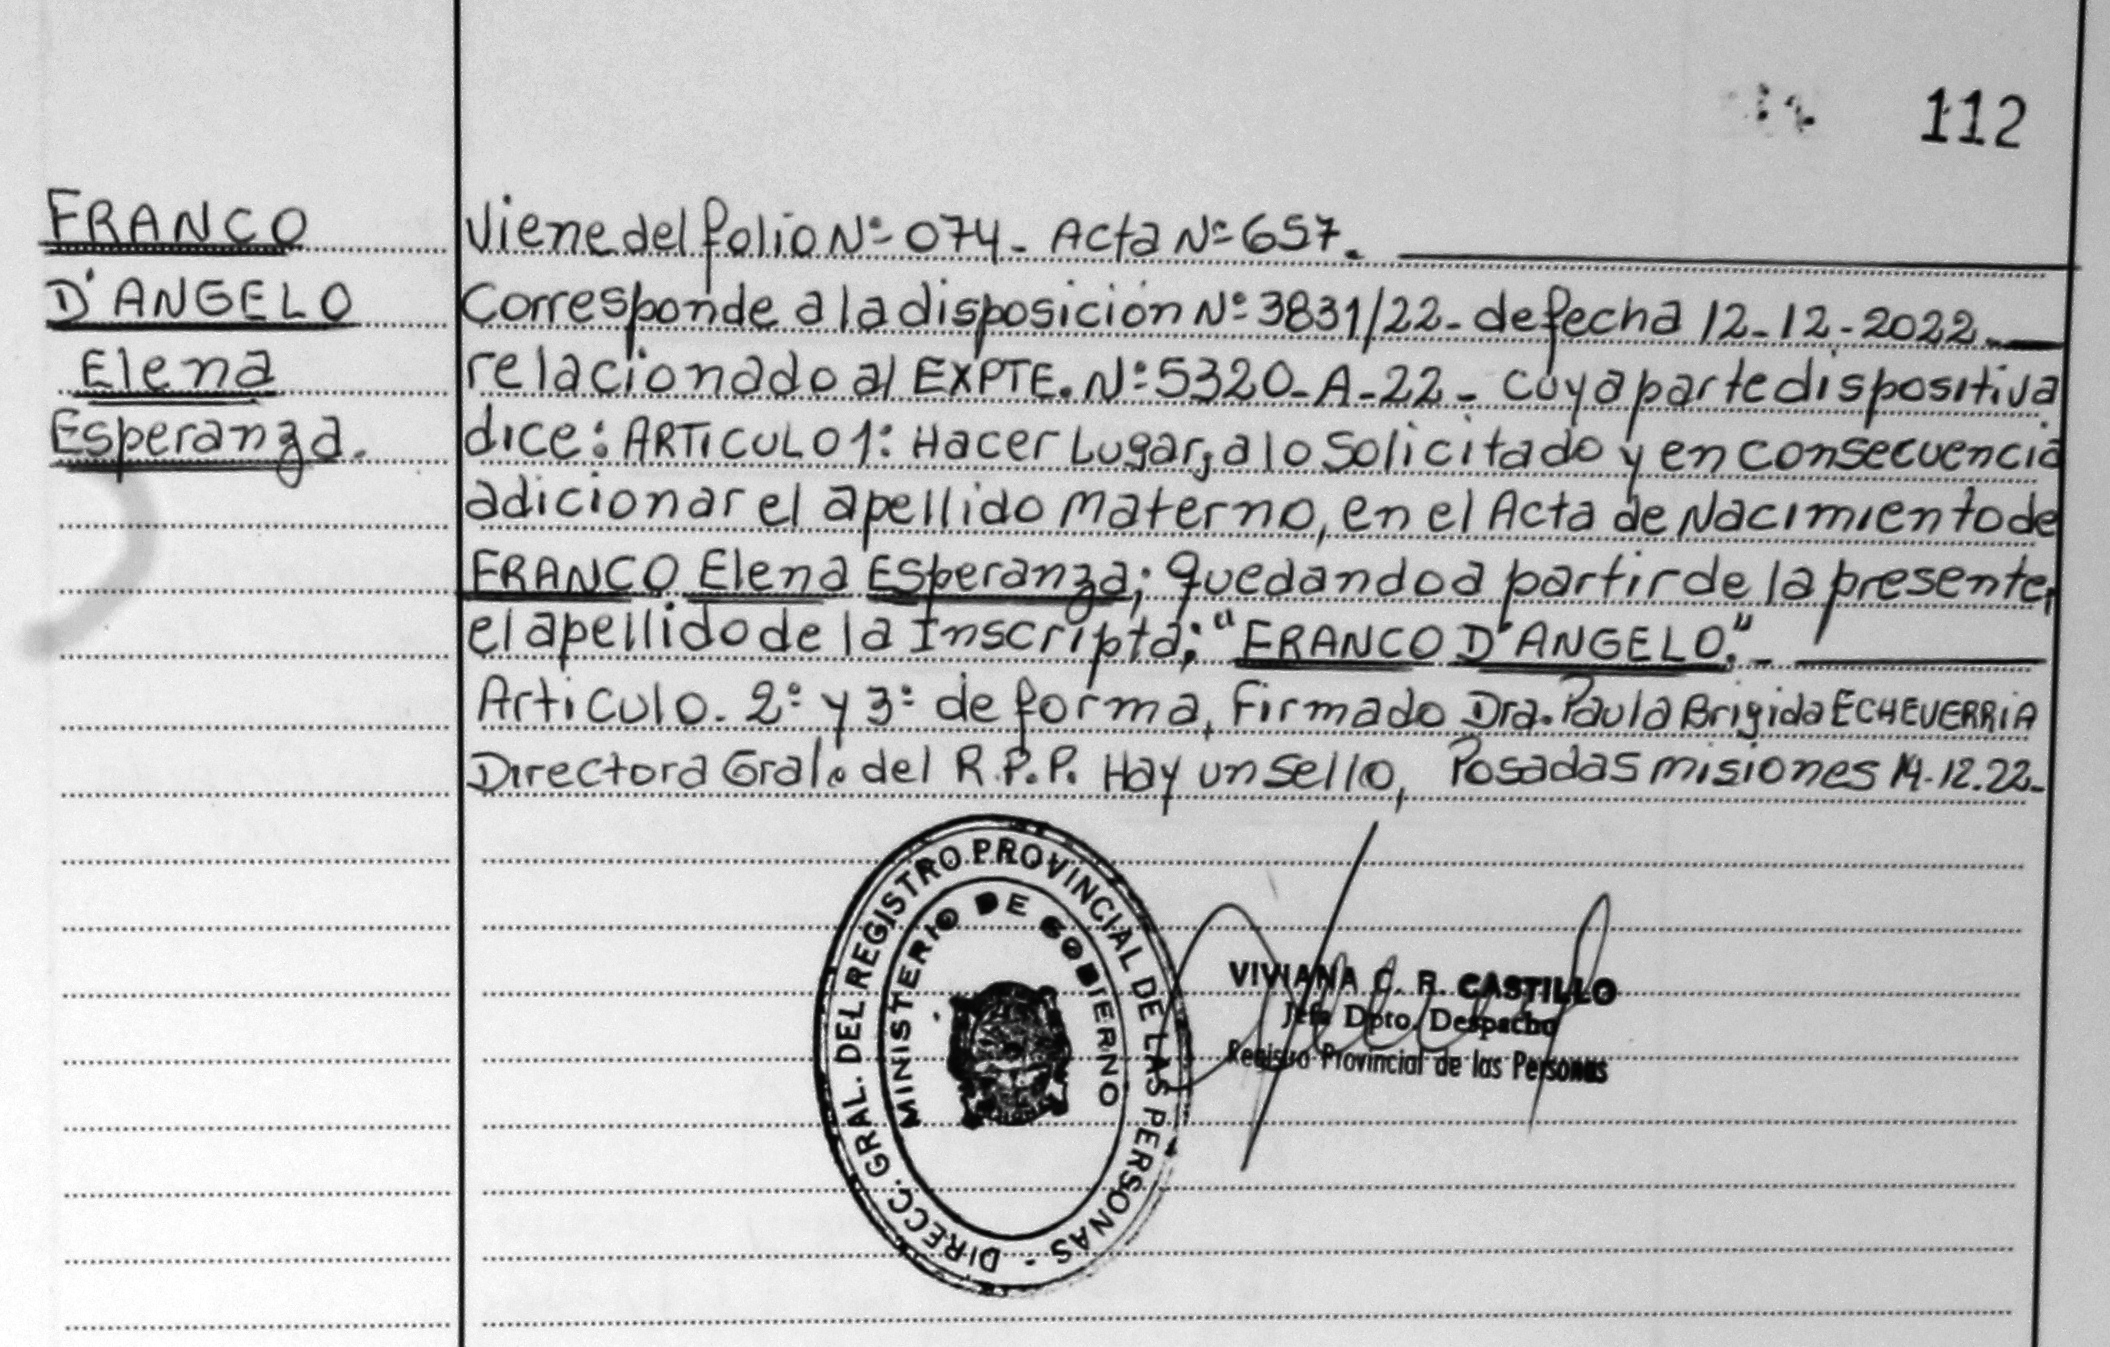 112
FRANCO
D'ANGELO
Elena
Esperanza.
Viene del folio Nº 074. Acta Nº 657.
Corresponde a la disposición Nº 3831/22. de fecha 12-12-2022.
relacionado al EXPTE. Nº 5320-A-22. cuya parte dispositiva
dice: ARTICULO 1: Hacer Lugar, a lo Solicitado y en consecuencia
adicionar el apellido Materno, en el Acta de Nacimiento de
FRANCO Elena Esperanza; quedando a partir de la presente,
el apellido de la Inscripta; "FRANCO D'ANGELO."
Articulo. 2º y 3º de forma, Firmado Dra. Paula Brigida ECHEVERRIA
Directora Gral. del R.P.P. Hay un sello, Posadas misiones 14.12.22.
DIRECC. GRAL. DEL REGISTRO PROVINCIAL DE LAS PERSONAS -
MINISTERIO DE GOBIERNO
VIVIANA C. R. CASTILLO
Jefa Dpto. Despacho
Registro Provincial de las Personas